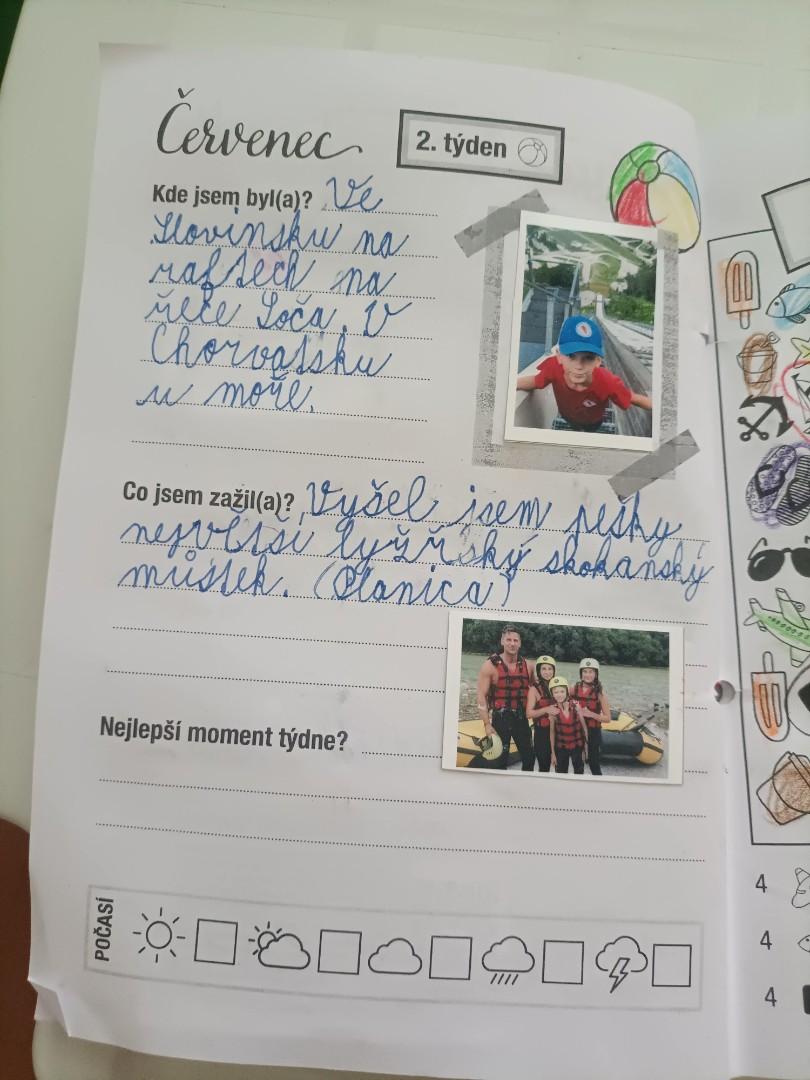 Červenec
2. týden
Kde jsem byl(a)? Ve
Slovinsku na
raftech na
řece Soča. V
Chorvatsku
u moře.
Co jsem zažil(a)? Vyšel jsem pěšky
největší lyžřský skokanský
můstek. (Planica)
Nejlepší moment týdne?
POČASÍ
4
4
4